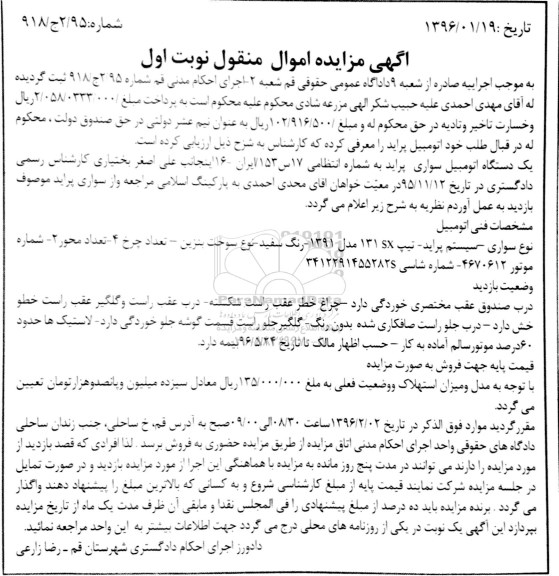 تاریخ :۱۳۹۶/۰۱/۱۹
شماره:۲/۹۵ج/۹۱۸
آگهی مزایده اموال منقول نوبت اول
به موجب اجراییه صادره از شعبه ۹دادگاه عمومی حقوقی قم شعبه ۲-اجرای احکام مدنی قم شماره ۲۹۵ج/۹۱۸ ثبت گردیده
له آقای مهدی احمدی علیه حبیب شکرالهی مزرعه شادی محکوم علیه محکوم است به پرداخت مبلغ ریال
وخسارت تاخیر وتادیه در حق محکوم له و مبلغ /۱۰۲/۹۱۶/۵۰۰ریال به عنوان نیم عشر دولتی در حق صندوق دولت ، محکوم
له در قبال طلب خود اتومبیل پراید را معرفی کرده که کارشناس به شرح ذیل ارزیابی کرده است.
یک دستگاه اتومبیل سواری پراید به شماره انتظامی ۱۷س۱۵۳/ایران -۱۶اینجانب علی اصغر بختیاری کارشناس رسمی
دادگستری در تاریخ ۹۵/۱۱/۱۲در معیّت خواهان اقای محدی احمدی به پارکینگ اسلامی مراجعه واز سواری پراید موصوف
بازدید به عمل آوردم نظریه به شرح زیر اعلام می گردد.
مشخصات فنی اتومبیل
نوع سواری -سیستم پراید- تیپ ۱۳۱ SX مدل ۱۳۹۱-رنگ سفید-نوع سوخت بنزین - تعداد چرخ ۴-تعداد محور۲- شماره
موتور ۴۶۷۰۶۱۲- شماره شاسی S۳۴۱۲۲۹۱۴۵۵۲۸۲
وضعیت بازدید
درب صندوق عقب مختصری خوردگی دارد -چراغ خطر عقب راست شکسته- درب عقب راست وگلگیر عقب راست خطو
خش دارد - درب جلو راست صافکاری شده بدون رنگ- گلگیرجلو راست قسمت گوشه جلو خوردگی دارد- لاستیک ها حدود
۶۰درصد موتورسالم آماده به کار - حسب اظهار مالک تا تاریخ ۹۶/۵/۲۴بیمه دارد.
قیمت پایه جهت فروش به صورت مزایده
با توجه به مدل ومیزان استهلاک ووضعیت فعلی به ملغ ۱۳۵/۰۰۰/۰۰۰ریال معادل سیزده میلیون وپانصدوهزارتومان تعیین
می گردد.
مقررگردید موارد فوق الذکر در تاریخ ۱۳۹۶/۲/۰۲ساعت ۰۸/۳۰الی۰۹/۰۰صبح به آدرس قم، خ ساحلی، جنب زندان ساحلی
دادگاه های حقوقی واحد اجرای احکام مدنی اتاق مزایده از طریق مزایده حضوری به فروش برسد . لذا افرادی که قصد بازدید از
مورد مزایده را دارند می توانند در مدت پنج روز مانده به مزایده با هماهنگی این اجرا از مورد مزایده بازدید و در صورت تمایل
در جلسه مزایده شرکت نمایند قیمت پایه از مبلغ کارشناسی شروع و به کسانی که بالاترین مبلغ را پیشنهاد دهند واگذار
می گردد . برنده مزایده باید ده درصد از مبلغ پیشنهادی را فی المجلس نقدا و مابقی آن ظرف مدت یک ماه از تاریخ مزایده
بپردازد این آگهی یک نوبت در یکی از روزنامه های محلی درج می گردد جهت اطلاعات بیشتر به این واحد مراجعه نمائید.
دادورز اجرای احکام دادگستری شهرستان قم - رضا زارعی